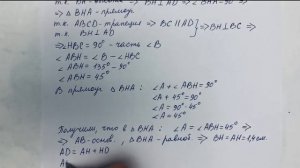 т.к. BH - высота => BH ⊥ AD => ∠BHA = 90°
=> △BHA - прямоуг.
т.к. ABCD - трапеция => BC ∥ AD } => BH ⊥ BC =>
т.к. BH ⊥ AD
=> ∠HBC = 90° - часть ∠B
∠ABH = ∠B - ∠HBC
∠ABH = 135° - 90°
∠ABH = 45°
В прямоуг △BHA : ∠A + ∠ABH = 90°
∠A + 45° = 90°
∠A = 90° - 45°
∠A = 45°
Получили, что в △BHA : ∠A = ∠ABH = 45° =>
=> AB - основ. , △BHA - равноб. => BH = AH =
AD = AH + HD